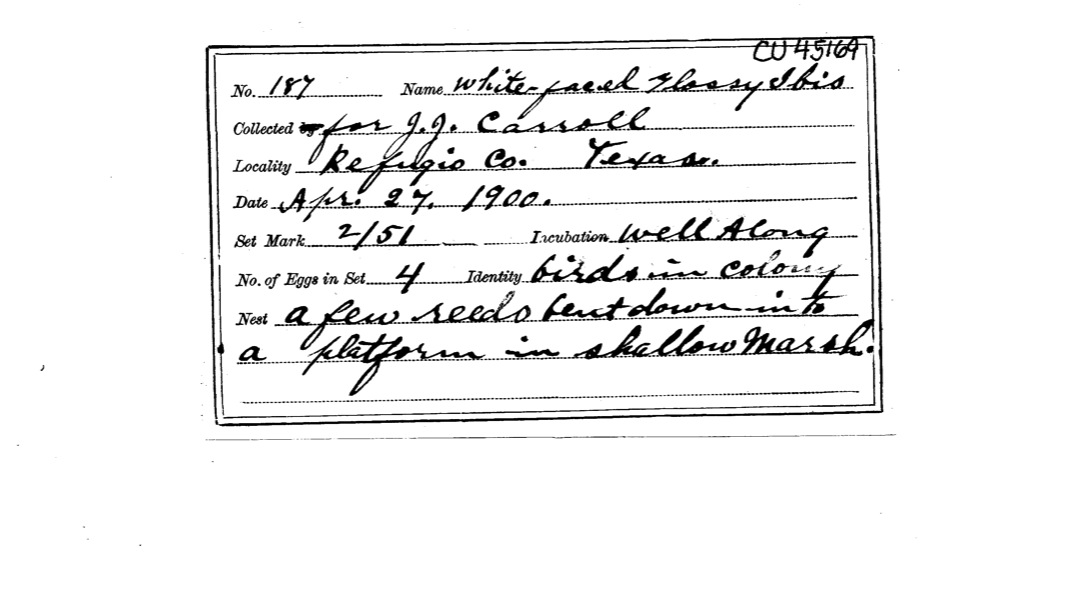 CU 45169
No. 187 Name White-faced Glossy Ibis
Collected by for J.J. Carroll
Locality Refugio Co. Texas.
Date Apr. 27. 1900.
Set Mark 2/51 Incubation Well Along
No. of Eggs in Set 4 Identity birds in colony
Nest a few reeds bent down in to
a platform in shallow Marsh.